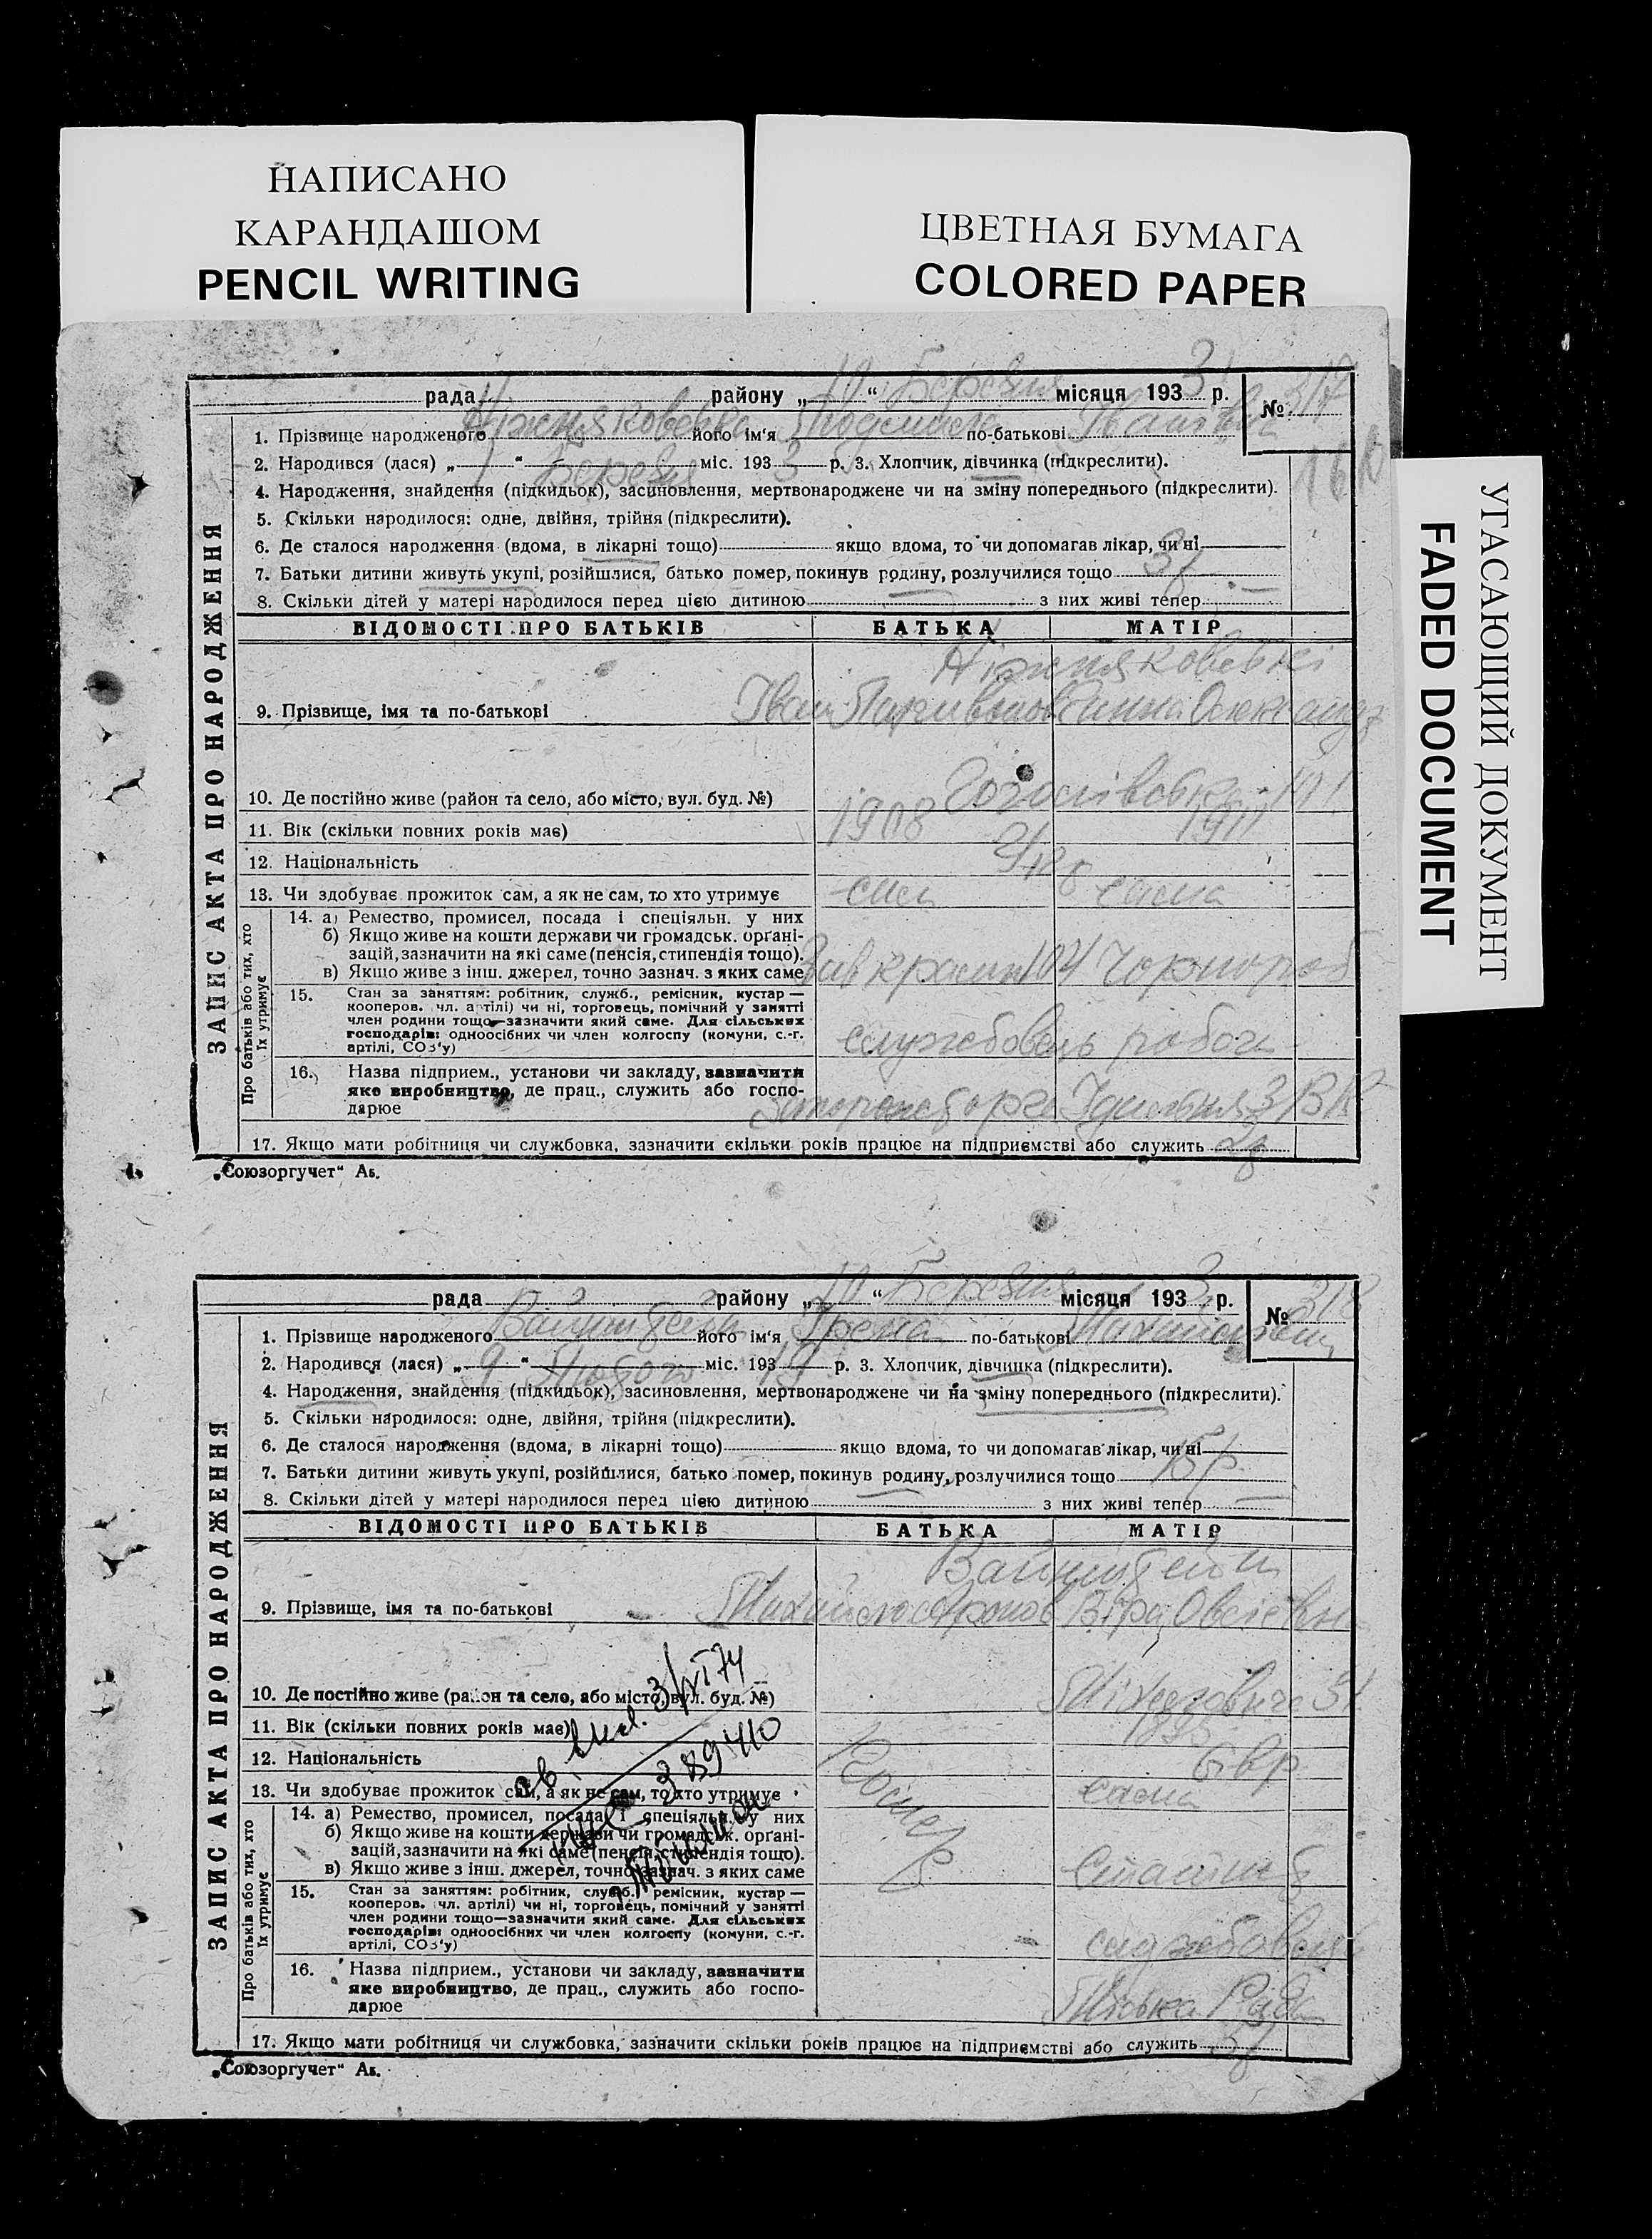 НАПИСАНО
КАРАНДАШОМ
PENCIL WRITING
ЦВЕТНАЯ БУМАГА
COLORED PAPER
УГАСАЮЩИЙ ДОКУМЕНТ
FADED DOCUMENT
рада району „ 10 “ Березня місяця 1933 р. № 317
1. Прізвище народженого його ім‘я Людмила по-батькові Іванівна
2. Народився (лася) „ 1 “ Березня міс. 1933 р. 3. Хлопчик, дівчинка (підкреслити).
4. Народження, знайдення (підкидьок), засиновлення, мертвонароджене чи на зміну попереднього (підкреслити).
5. Скільки народилося: одне, двійня, трійня (підкреслити).
6. Де сталося народження (вдома, в лікарні тощо) якщо вдома, то чи допомагав лікар, чи ні
7. Батьки дитини живуть укупі, розійшлися, батько помер, покинув родину, розлучилися тощо
8. Скільки дітей у матері народилося перед цією дитиною з них живі тепер
ВІДОМОСТІ ПРО БАТЬКІВ БАТЬКА МАТІР
9. Прізвище, імя та по-батькові Іван
10. Де постійно живе (район та село, або місто, вул. буд. №)
11. Вік (скільки повних років має) 1908 1911
12. Національність Укр
13. Чи здобуває прожиток сам, а як не сам, то хто утримує сам сама
14. а) Ремество, промисел, посада і спеціяльн. у них
б) Якщо живе на кошти держави чи громадськ. орґані-
зацій, зазначити на які саме (пенсія, стипендія тощо).
в) Якщо живе з інш. джерел, точно зазнач. з яких саме Зав крамн 104 Чорнороб
15. Стан за заняттям: робітник, служб., ремісник, кустар —
кооперов. чл. артілі) чи ні, торговець, помічний у занятті
член родини тощо—зазначити який саме. Для сільських
господарів: одноосібних чи член колгоспу (комуни, с.-г.
артілі, СОЗ‘у) службовець робочи
16. Назва підприєм., установи чи закладу, зазначити
яке виробництво, де прац., служить або госпо-
дарює
17. Якщо мати робітниця чи службовка, зазначити скільки років працює на підприємстві або служить
ЗАПИС АКТА ПРО НАРОДЖЕННЯ
Про батьків або тих, хто
їх утримує
„Союзоргучет“ Аб.
рада району „ 10 “ Березня місяця 1933 р. № 318
1. Прізвище народженого Вайнштейн його ім‘я Ірена по-батькові Михайловна
2. Народився (лася) „ 9 “ Лютого міс. 193 19 р. 3. Хлопчик, дівчинка (підкреслити).
4. Народження, знайдення (підкидьок), засиновлення, мертвонароджене чи на зміну попереднього (підкреслити).
5. Скільки народилося: одне, двійня, трійня (підкреслити).
6. Де сталося народження (вдома, в лікарні тощо) якщо вдома, то чи допомагав лікар, чи ні
7. Батьки дитини живуть укупі, розійшлися, батько помер, покинув родину, розлучилися тощо 15р.
8. Скільки дітей у матері народилося перед цією дитиною з них живі тепер
ВІДОМОСТІ ПРО БАТЬКІВ БАТЬКА МАТІР
Вайнштейн
9. Прізвище, імя та по-батькові Михайло Аронов Віра Овсієвн
10. Де постійно живе (район та село, або місто, вул. буд. №)
11. Вік (скільки повних років має) 1895
12. Національність Євр
13. Чи здобуває прожиток сам, а як не сам, то хто утримує сама
14. а) Ремество, промисел, посада і спеціяльн. у них
б) Якщо живе на кошти держави чи громадськ. орґані-
зацій, зазначити на які саме (пенсія, стипендія тощо).
в) Якщо живе з інш. джерел, точно зазнач. з яких саме
15. Стан за заняттям: робітник, служб., ремісник, кустар —
кооперов. чл. артілі) чи ні, торговець, помічний у занятті
член родини тощо—зазначити який саме. Для сільських
господарів: одноосібних чи член колгоспу (комуни, с.-г.
артілі, СОЗ‘у) службовець
16. Назва підприєм., установи чи закладу, зазначити
яке виробництво, де прац., служить або госпо-
дарює
17. Якщо мати робітниця чи службовка, зазначити скільки років працює на підприємстві або служить
ЗАПИС АКТА ПРО НАРОДЖЕННЯ
Про батьків або тих, хто
їх утримує
3/XI 74
389410
„Союзоргучет“ Аб.